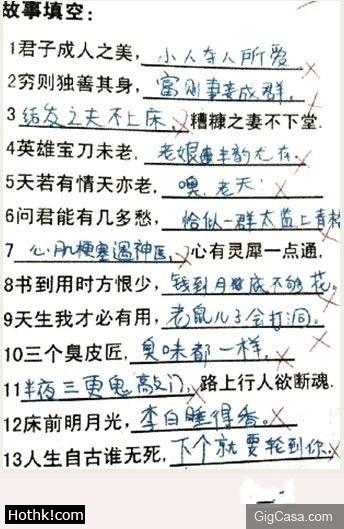 故事填空：
1君子成人之美，小人夺人所爱
2穷则独善其身，富则妻妾成群。
3 结发之夫不上床，糟糠之妻不下堂.
4英雄宝刀未老，老娘丰韵尤存.
5天若有情天亦老，噢,老天
6问君能有几多愁，恰似一群太监上青楼
7 心肌梗塞遇神医，心有灵犀一点通，
8书到用时方恨少，钱到月底不够花。
9天生我才必有用，老鼠儿子会打洞。
10三个臭皮匠，臭味都一样。
11半夜三更鬼敲门，路上行人欲断魂.
12床前明月光，李白睡得香。
13人生自古谁无死，下个就要轮到你。
Hothk!com
GigCasa.com